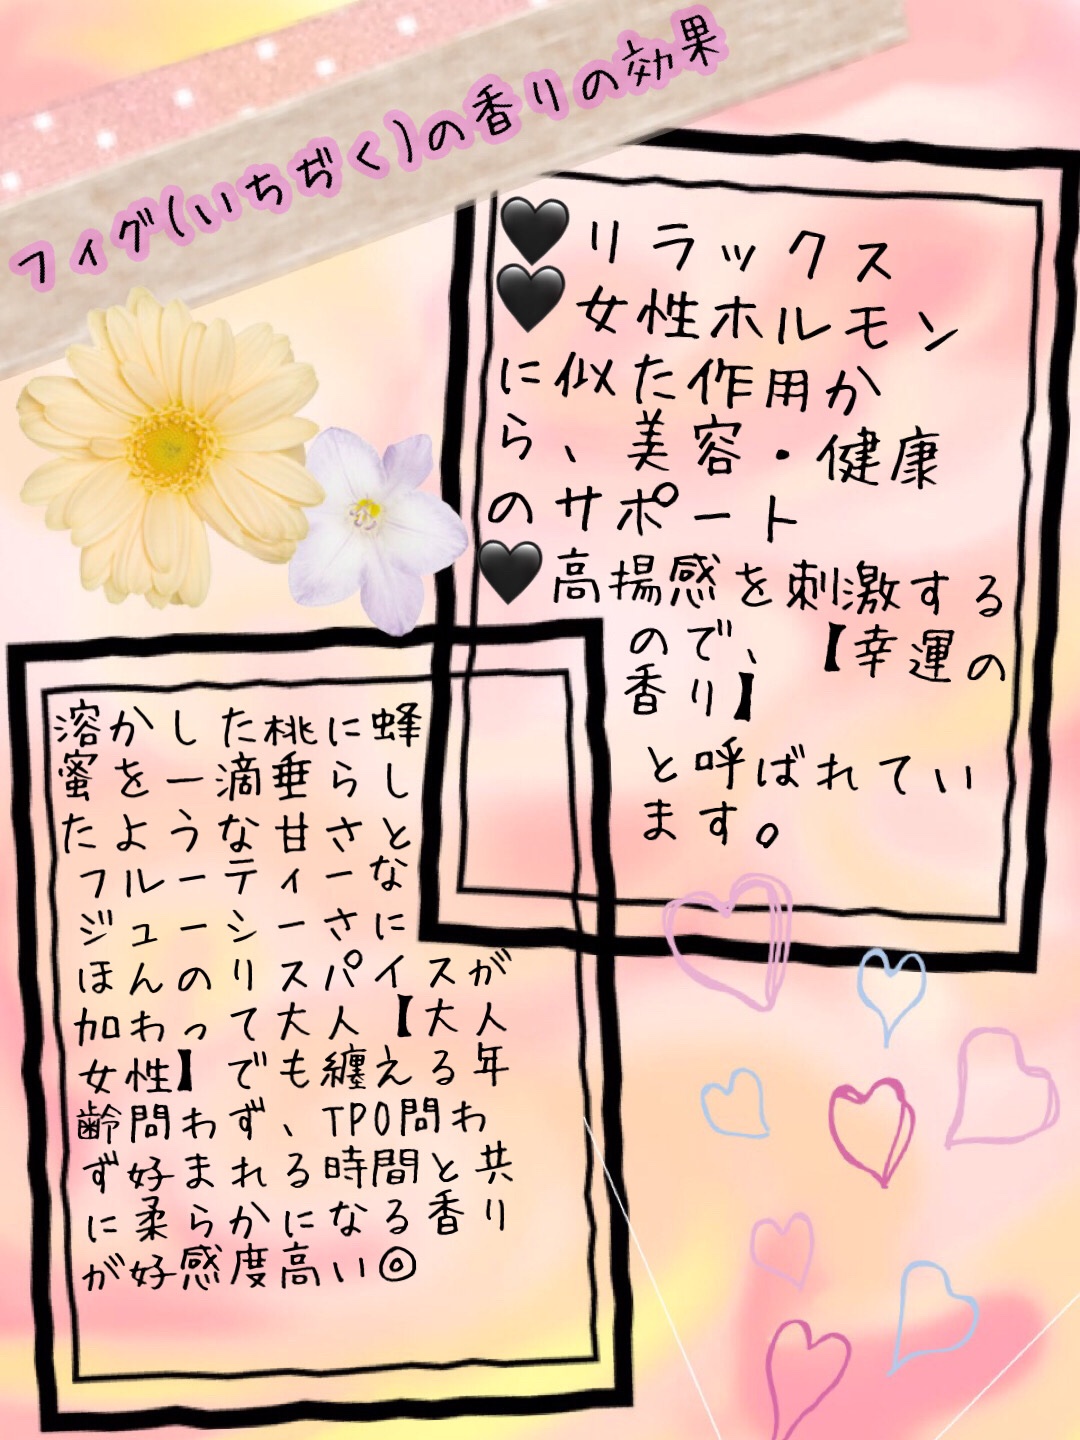 フィグ(いちぢく)の香りの効果
🖤リラックス
🖤女性ホルモン
に似た作用か
ら、美容・健康
のサポート
🖤高揚感を刺激する
ので、【幸運の
香り】
と呼ばれてい
ます。
溶かした桃に蜂
蜜を一滴垂らし
たような甘さと
フルーティーな
ジューシーさに
ほんのりスパイスが
加わって大人【大人
女性】でも纏える年
齢問わず、TPO問わ
ず好まれる時間と共
に柔らかになる香り
が好感度高い◎